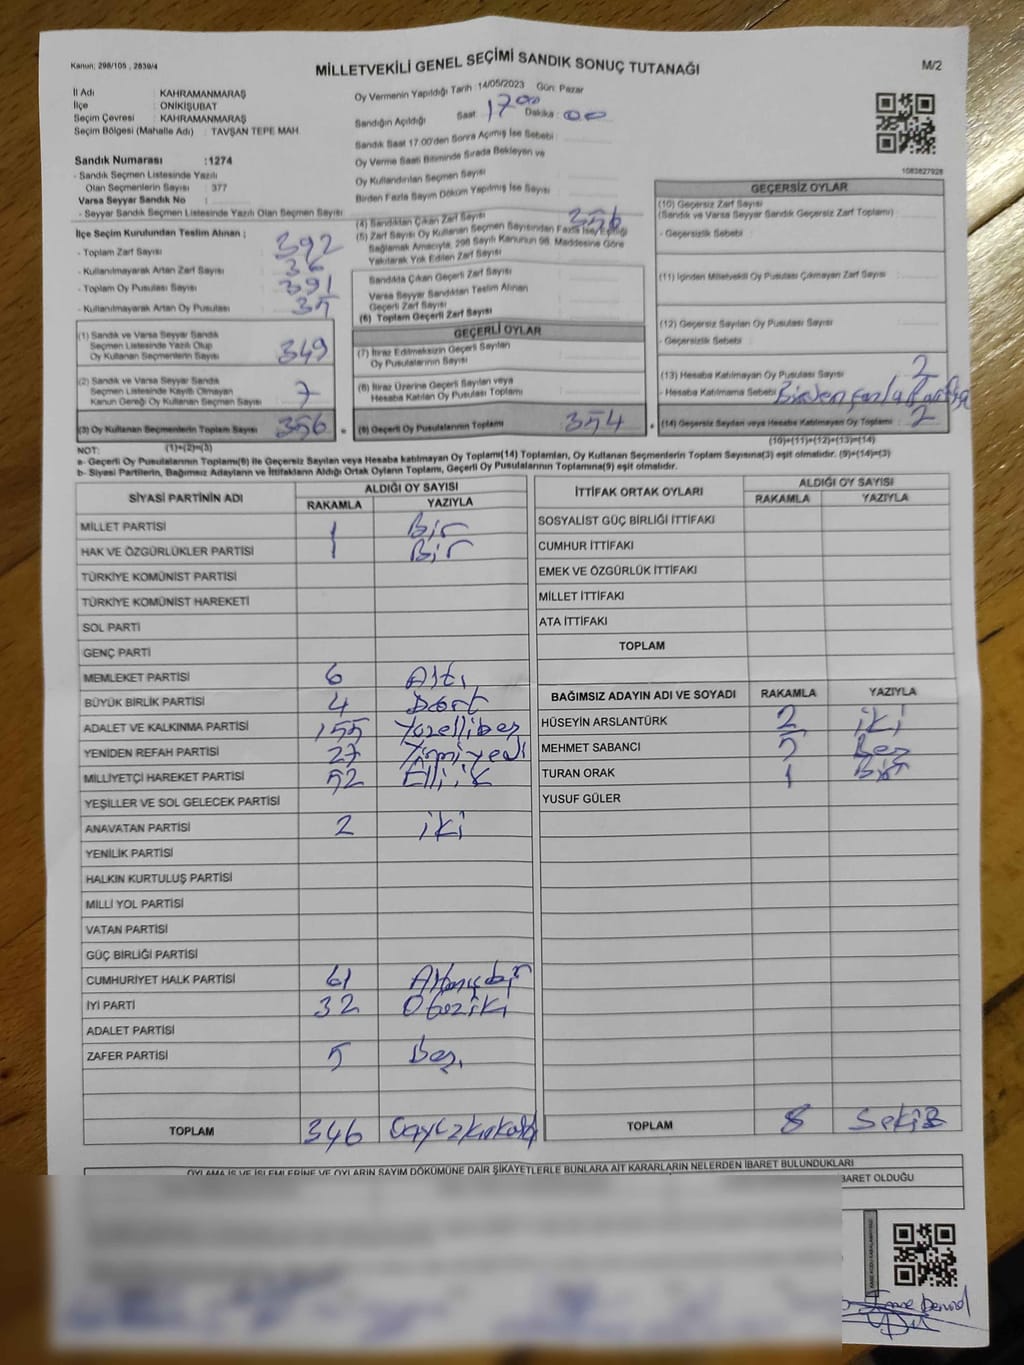 Kanun: 298/105 , 2839/4
MİLLETVEKİLİ GENEL SEÇİMİ SANDIK SONUÇ TUTANAĞI
M/2
İl Adı : KAHRAMANMARAŞ
İlçe : ONİKİŞUBAT
Seçim Çevresi : KAHRAMANMARAŞ
Seçim Bölgesi (Mahalle Adı) : TAVŞAN TEPE MAH.
Sandık Numarası : 1274
- Sandık Seçmen Listesinde Yazılı
Olan Seçmenlerin Sayısı : 377
Varsa Seyyar Sandık No :
- Seyyar Sandık Seçmen Listesinde Yazılı Olan Seçmen Sayısı
Oy Vermenin Yapıldığı Tarih :14/05/2023 Gün: Pazar
Sandığın Açıldığı Saat: 17 00 Dakika : 00
Sandık Saat 17.00'den Sonra Açımış İse Sebebi :
Oy Verme Saati Bitiminde Sırada Bekleyen ve
Oy Kullandırılan Seçmen Sayısı
Birden Fazla Sayım Döküm Yapılmış İse Sayısı
1083827928
İlçe Seçim Kurulundan Teslim Alınan ;
- Toplam Zarf Sayısı : 392
- Kullanılmayarak Artan Zarf Sayısı : 36
- Toplam Oy Pusulası Sayısı : 391
- Kullanılmayarak Artan Oy Pusulası : 35
(1) Sandık ve Varsa Seyyar Sandık
Seçmen Listesinde Yazılı Olup
Oy Kullanan Seçmenlerin Sayısı 349
(2) Sandık ve Varsa Seyyar Sandık
Seçmen Listesinde Kayıtlı Olmayan
Kanun Gereği Oy Kullanan Seçmen Sayısı 7
(3) Oy Kullanan Seçmenlerin Toplam Sayısı 356
(1)+(2)=(3)
(4) Sandıktan Çıkan Zarf Sayısı 356
(5) Zarf Sayısı Oy Kullanan Seçmen Sayısından Fazla İse, Eşitliği
Sağlamak Amacıyla, 298 Sayılı Kanunun 98. Maddesine Göre
Yakılarak Yok Edilen Zarf Sayısı
Sandıkta Çıkan Geçerli Zarf Sayısı
Varsa Seyyar Sandıktan Teslim Alınan
Geçerli Zarf Sayısı
(6) Toplam Geçerli Zarf Sayısı
GEÇERLİ OYLAR
(7) İtiraz Edilmeksizin Geçerli Sayılan
Oy Pusulalarının Sayısı
(8) İtiraz Üzerine Geçerli Sayılan veya
Hesaba Katılan Oy Pusulası Toplamı
(9) Geçerli Oy Pusulalarının Toplamı 354
GEÇERSİZ OYLAR
(10) Geçersiz Zarf Sayısı
(Sandık ve Varsa Seyyar Sandık Geçersiz Zarf Toplamı)
- Geçersizlik Sebebi :
(11) İçinden Milletvekili Oy Pusulası Çıkmayan Zarf Sayısı
(12) Geçersiz Sayılan Oy Pusulası Sayısı
- Geçersizlik Sebebi :
(13) Hesaba Katılmayan Oy Pusulası Sayısı 2
- Hesaba Katılmama Sebebi : Birden fazla
(14) Geçersiz Sayılan veya Hesaba Katılmayan Oy Toplamı 2
(10)+(11)+(12)+(13)=(14)
NOT:
a- Geçerli Oy Pusulalarının Toplamı(9) ile Geçersiz Sayılan veya Hesaba katılmayan Oy Toplamı(14) Toplamları, Oy Kullanan Seçmenlerin Toplam Sayısına(3) eşit olmalıdır. (9)+(14)=(3)
b- Siyasi Partilerin, Bağımsız Adayların ve İttifakların Aldığı Ortak Oyların Toplamı, Geçerli Oy Pusulalarının Toplamına(9) eşit olmalıdır.
SİYASİ PARTİNİN ADI ALDIĞI OY SAYISI
RAKAMLA YAZIYLA
MİLLET PARTİSİ 1 Bir
HAK VE ÖZGÜRLÜKLER PARTİSİ 1 Bir
TÜRKİYE KOMÜNİST PARTİSİ
TÜRKİYE KOMÜNİST HAREKETİ
SOL PARTİ
GENÇ PARTİ
MEMLEKET PARTİSİ 6 Altı
BÜYÜK BİRLİK PARTİSİ 4 Dört
ADALET VE KALKINMA PARTİSİ 155 Yüzellibeş
YENİDEN REFAH PARTİSİ 27 Yirmiyedi
MİLLİYETÇİ HAREKET PARTİSİ 52
YEŞİLLER VE SOL GELECEK PARTİSİ
ANAVATAN PARTİSİ 2 iki
YENİLİK PARTİSİ
HALKIN KURTULUŞ PARTİSİ
MİLLİ YOL PARTİSİ
VATAN PARTİSİ
GÜÇ BİRLİĞİ PARTİSİ
CUMHURİYET HALK PARTİSİ 61 Altmışbir
İYİ PARTİ 32 Otuziki
ADALET PARTİSİ
ZAFER PARTİSİ 5 Beş
TOPLAM 346
İTTİFAK ORTAK OYLARI ALDIĞI OY SAYISI
RAKAMLA YAZIYLA
SOSYALİST GÜÇ BİRLİĞİ İTTİFAKI
CUMHUR İTTİFAKI
EMEK VE ÖZGÜRLÜK İTTİFAKI
MİLLET İTTİFAKI
ATA İTTİFAKI
TOPLAM
BAĞIMSIZ ADAYIN ADI VE SOYADI RAKAMLA YAZIYLA
HÜSEYİN ARSLANTÜRK 2 iki
MEHMET SABANCI 5 Beş
TURAN ORAK 1 Bir
YUSUF GÜLER
TOPLAM 8 Sekiz
OYLAMA İŞ VE İŞLEMLERİNE VE OYLARIN SAYIM DÖKÜMÜNE DAİR ŞİKAYETLERLE BUNLARA AİT KARARLARIN NELERDEN İBARET BULUNDUKLARI
BARET OLDUĞU